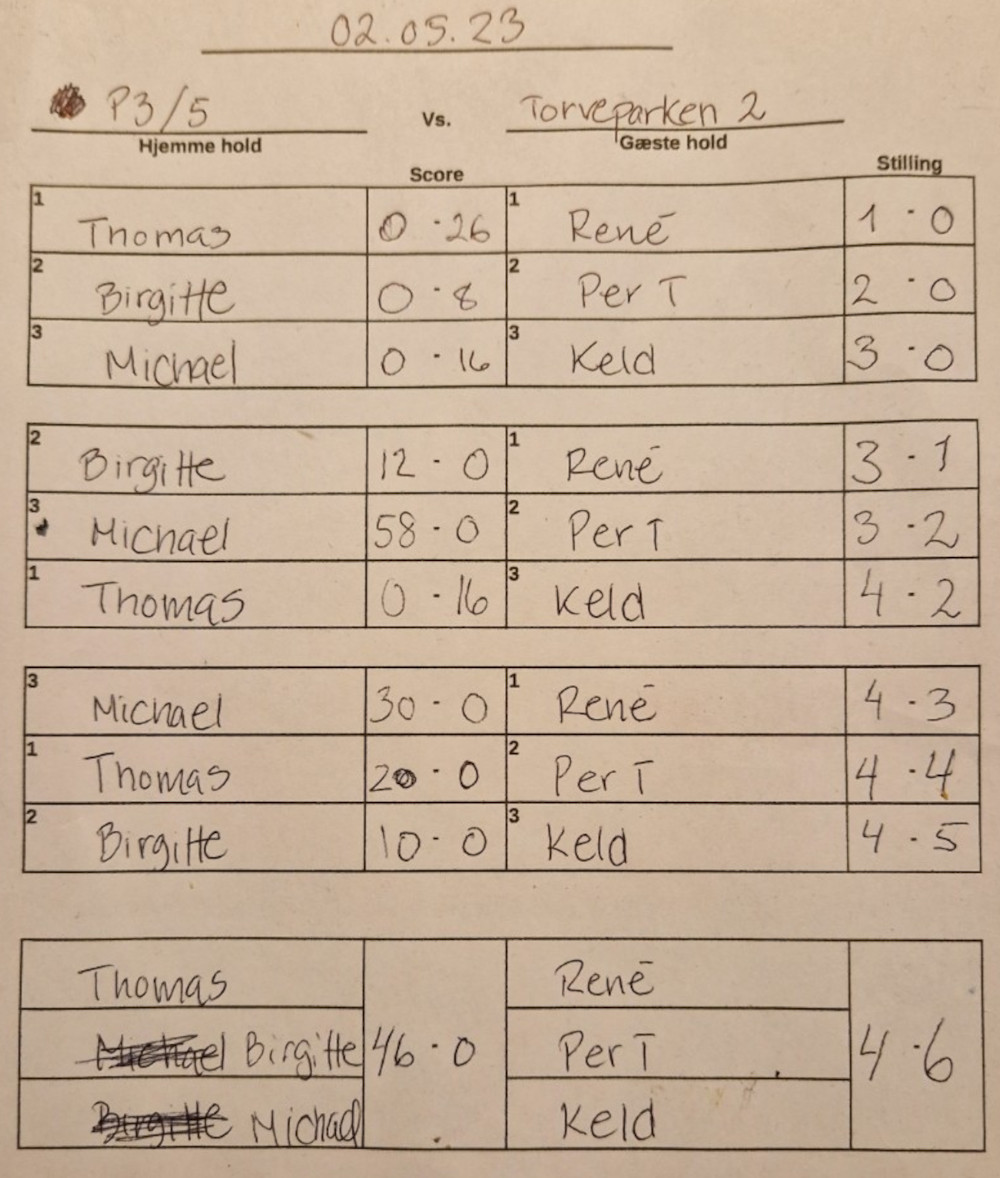 02.05.23
P3/5 Vs. Torveparken 2
Hjemme hold Gæste hold
Score Stilling
1 Thomas 0 · 26 1 René 1 · 0
2 Birgitte 0 · 8 2 Per T 2 · 0
3 Michael 0 · 16 3 Keld 3 · 0
2 Birgitte 12 · 0 1 René 3 · 1
3 Michael 58 · 0 2 Per T 3 · 2
1 Thomas 0 · 16 3 Keld 4 · 2
3 Michael 30 · 0 1 René 4 · 3
1 Thomas 20 · 0 2 Per T 4 · 4
2 Birgitte 10 · 0 3 Keld 4 · 5
Thomas René
Michael Birgitte 46 · 0 Per T 4 · 6
Birgitte Michael Keld